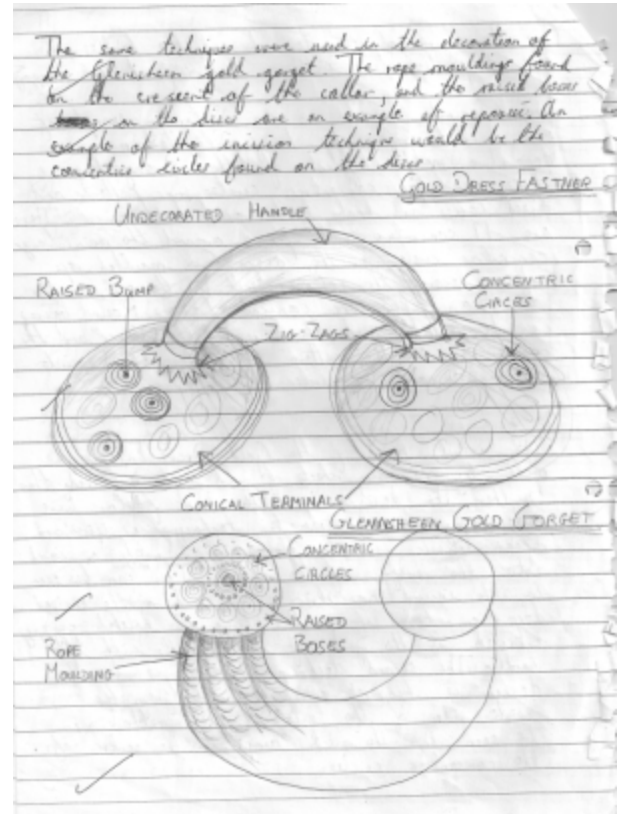 The same techniques were used in the decoration of
the Glenisheen gold gorget. The rope mouldings found
on the crescent of the collar, and the raised boses
on the discs are an example of repoussé. An
example of the incision technique would be the
concentric circles found on the discs
GOLD DRESS FASTNER
UNDECORATED HANDLE
RAISED BUMP
CONCENTRIC
CIRCES
ZIG-ZAGS
CONICAL TERMINALS
GLENINSHEEN GOLD GORGET
CONCENTRIC
CIRCLES
RAISED
BOSES
ROPE
MOULDING